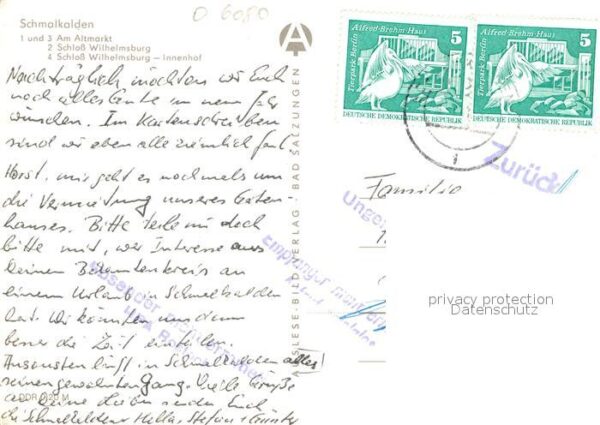 O 6080
Schmalkalden
1 und 3 Am Altmarkt
2 Schloß Wilhelmsburg
4 Schloß Wilhelmsburg – Innenhof
Nachträglich möchten wir Euch
noch alles Gute im neuen Jahr
wünschen. Im Kartenschreiben
sind wir eben alle ziemlich faul
Horst, mir geht es nochmals um
die Vermietung unseres Garten-
hauses. Bitte teile mir doch
bitte mit, wer Interesse aus
Deinem Bekanntenkreis an
einem Urlaub in Schmalkalden
hat. Wir könnten uns dann
besser die Zeit einteilen.
Ansonsten läuft in Schmalkalden alles
seinen gewohnten Gang. Viele Grüße
an Deine Lieben senden Euch
die Schmalkaldener Hella, Stefan + Günter
DDR 0,20 M
AUSLESE-BILD-VERLAG · BAD SALZUNGEN
Tierpark Berlin
Alfred-Brehm-Haus
5
DEUTSCHE DEMOKRATISCHE REPUBLIK
Tierpark Berlin
Alfred-Brehm-Haus
5
DEUTSCHE DEMOKRATISCHE REPUBLIK
Zurück
Familie
Empfänger
privacy protection
Datenschutz